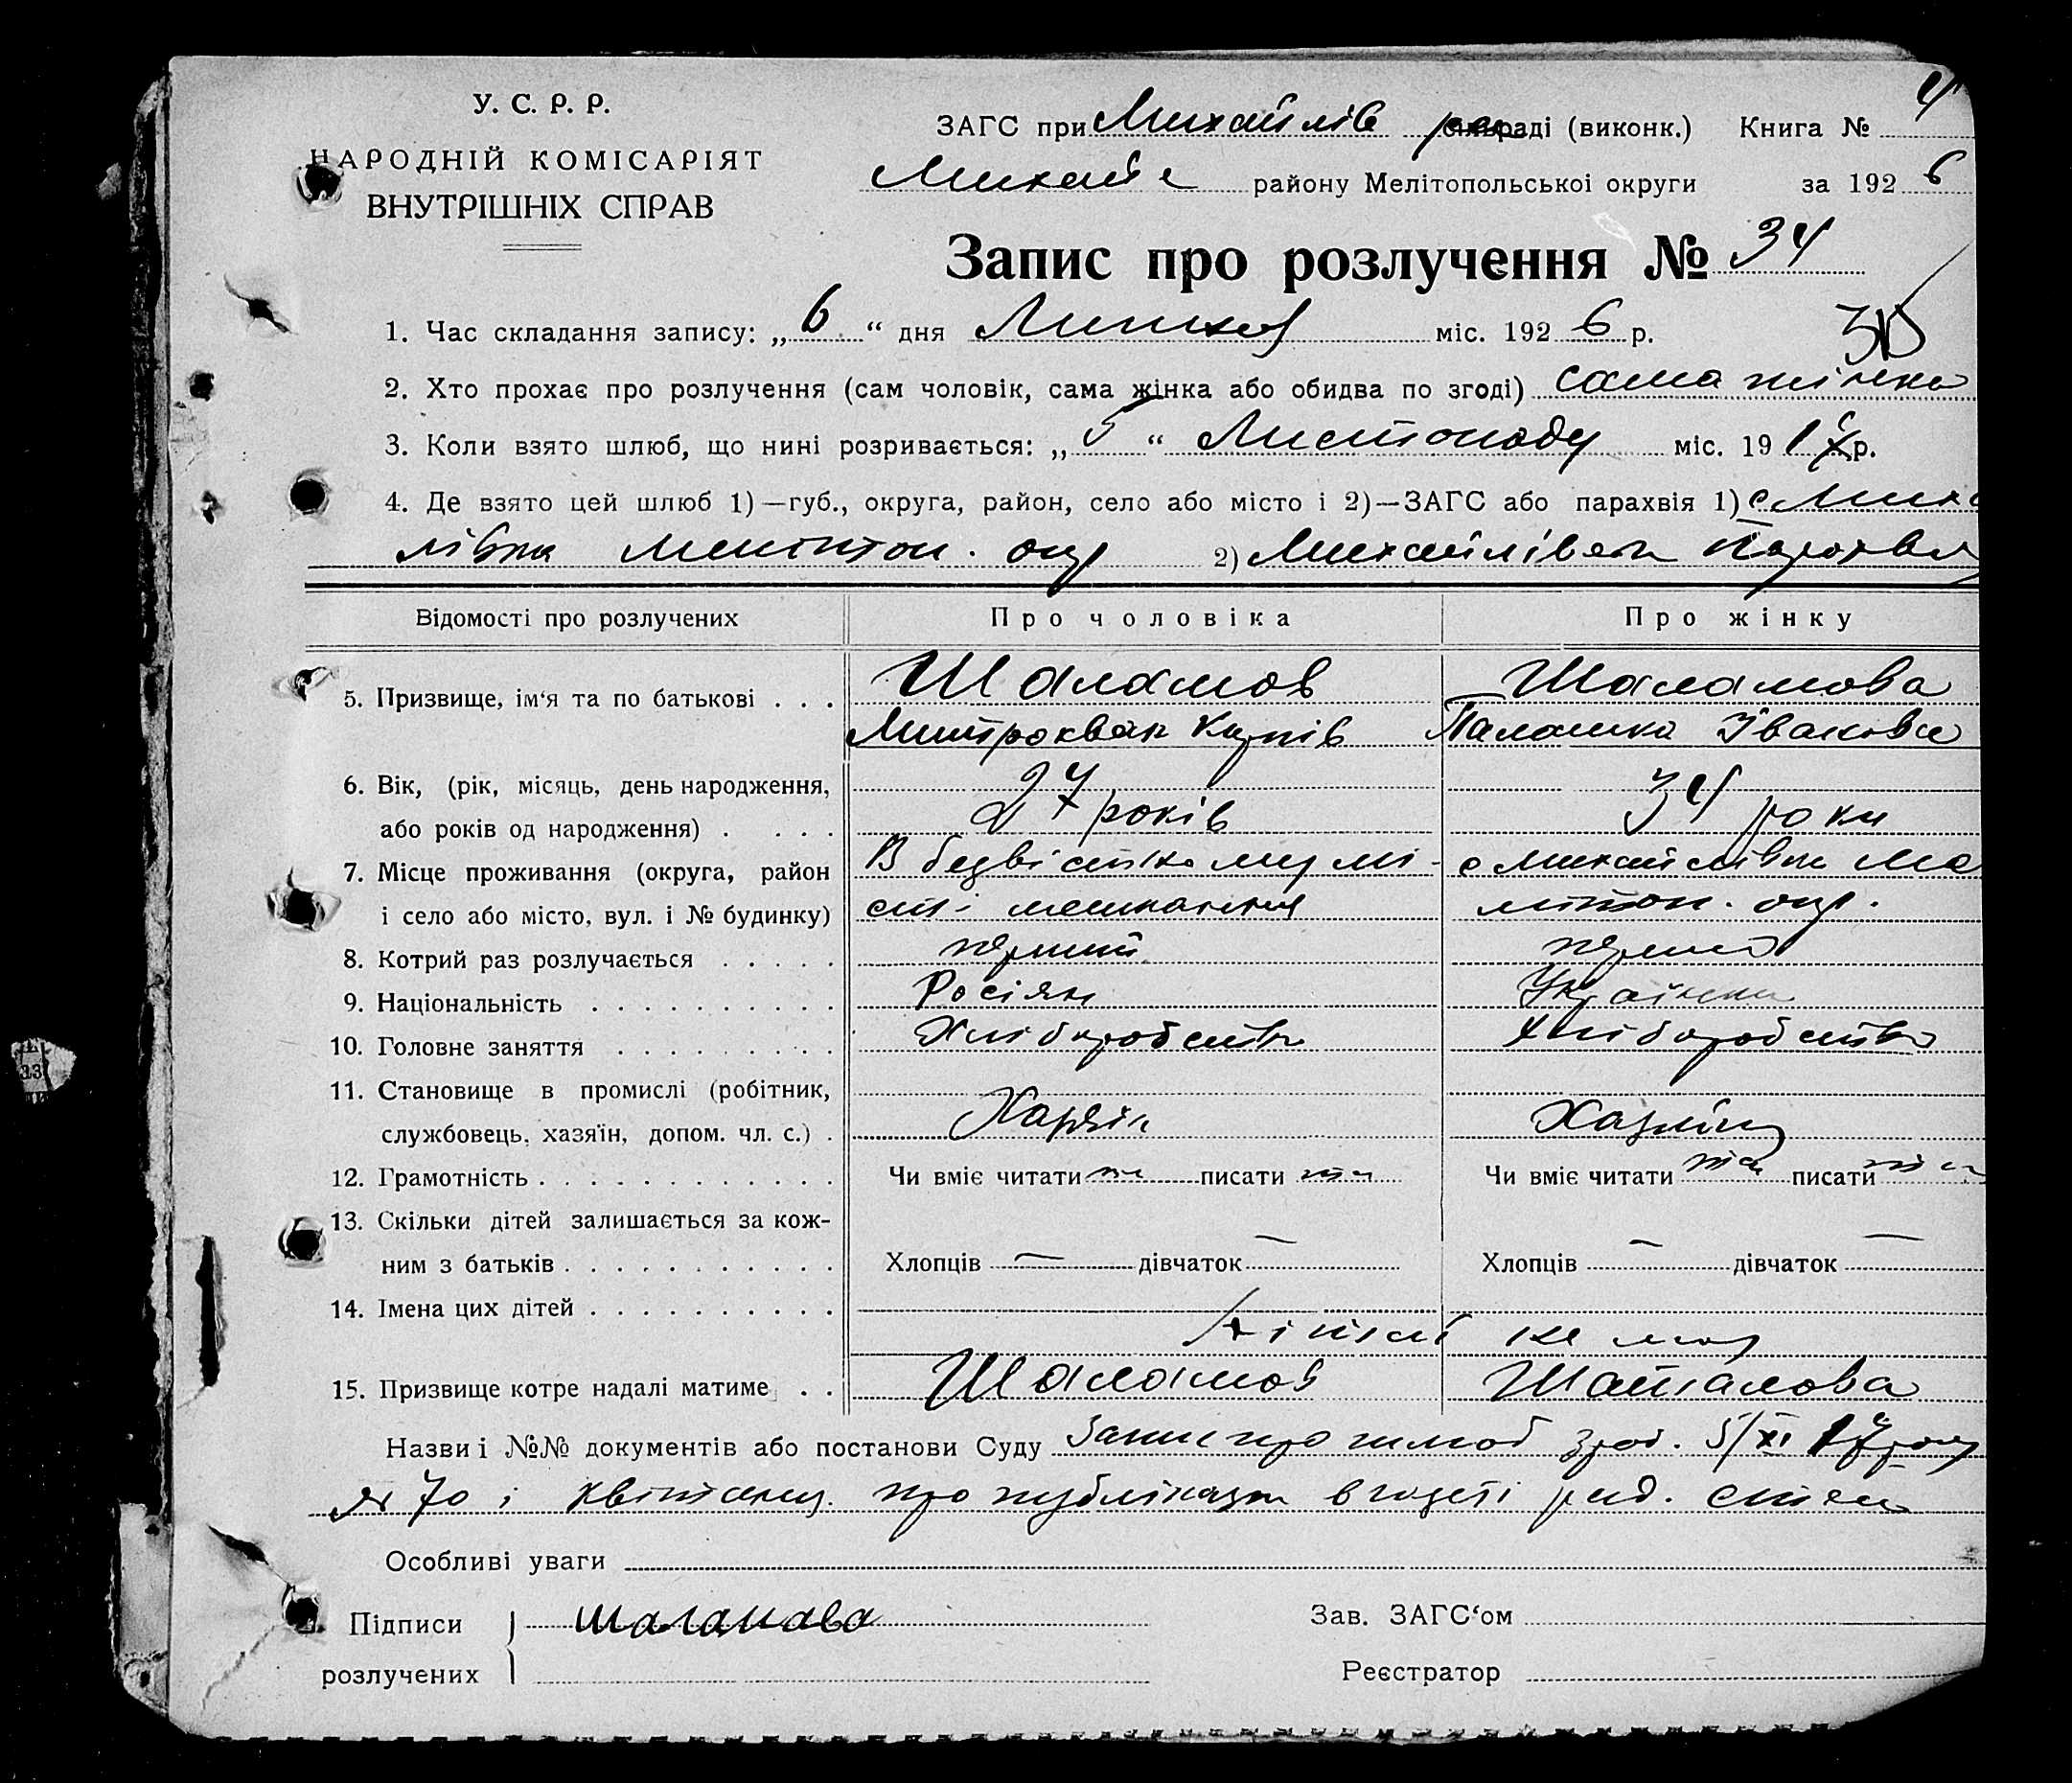 У. С. Р. Р.
НАРОДНІЙ КОМІСАРІЯТ
ВНУТРІШНІХ СПРАВ
ЗАГС при Михайлів раді (виконк.) Книга № 4
району Мелітопольської округи за 1926
Запис про розлучення № 34
1. Час складання запису: „6“ дня Липня міс. 1926 р.
2. Хто прохає про розлучення (сам чоловік, сама жінка або обидва по згоді) сама жінка
3. Коли взято шлюб, що нині розривається: „5“ Листопаду міс. 191 р.
4. Де взято цей шлюб 1)—губ., округа, район, село або місто і 2)—ЗАГС або парахвія 1) с Миха
лівка Мелітоп. окр 2) Михайлівськ Парахвія
Відомості про розлучених Про чоловіка Про жінку
5. Призвище, ім‘я та по батькові . . . Шаламов Шаламова
Митрохван Палажка Івановна
6. Вік, (рік, місяць, день народження,
або років од народження) . . . . 27 років 34 роки
7. Місце проживання (округа, район В безвісткому мі- с Михайлівка Ме
і село або місто, вул. і № будинку) сті мешкання літоп. окр.
8. Котрий раз розлучається . . . . . перший перший
9. Національність . . . . . . . . . . Росіян Українка
10. Головне заняття . . . . . . . . . Хліборобство хліборобство
11. Становище в промислі (робітник,
службовець, хазяїн, допом. чл. с.) . Хазяїн
12. Грамотність . . . . . . . . . . . . Чи вміє читати писати Чи вміє читати писати
13. Скільки дітей залишається за кож-
ним з батьків . . . . . . . . . . . Хлопців — дівчаток — Хлопців — дівчаток —
14. Імена цих дітей . . . . . . . . . .
дітей не має
15. Призвище котре надалі матиме . . Шаламов Шаталова
Назви і №№ документів або постанови Суду Запис про шлюб 5/XI 17 року
№ 70 і квітанц. про публікацію в газеті рад. степ
Особливі уваги
Підписи шаламова Зав. ЗАГС‘ом
розлучених Реєстратор